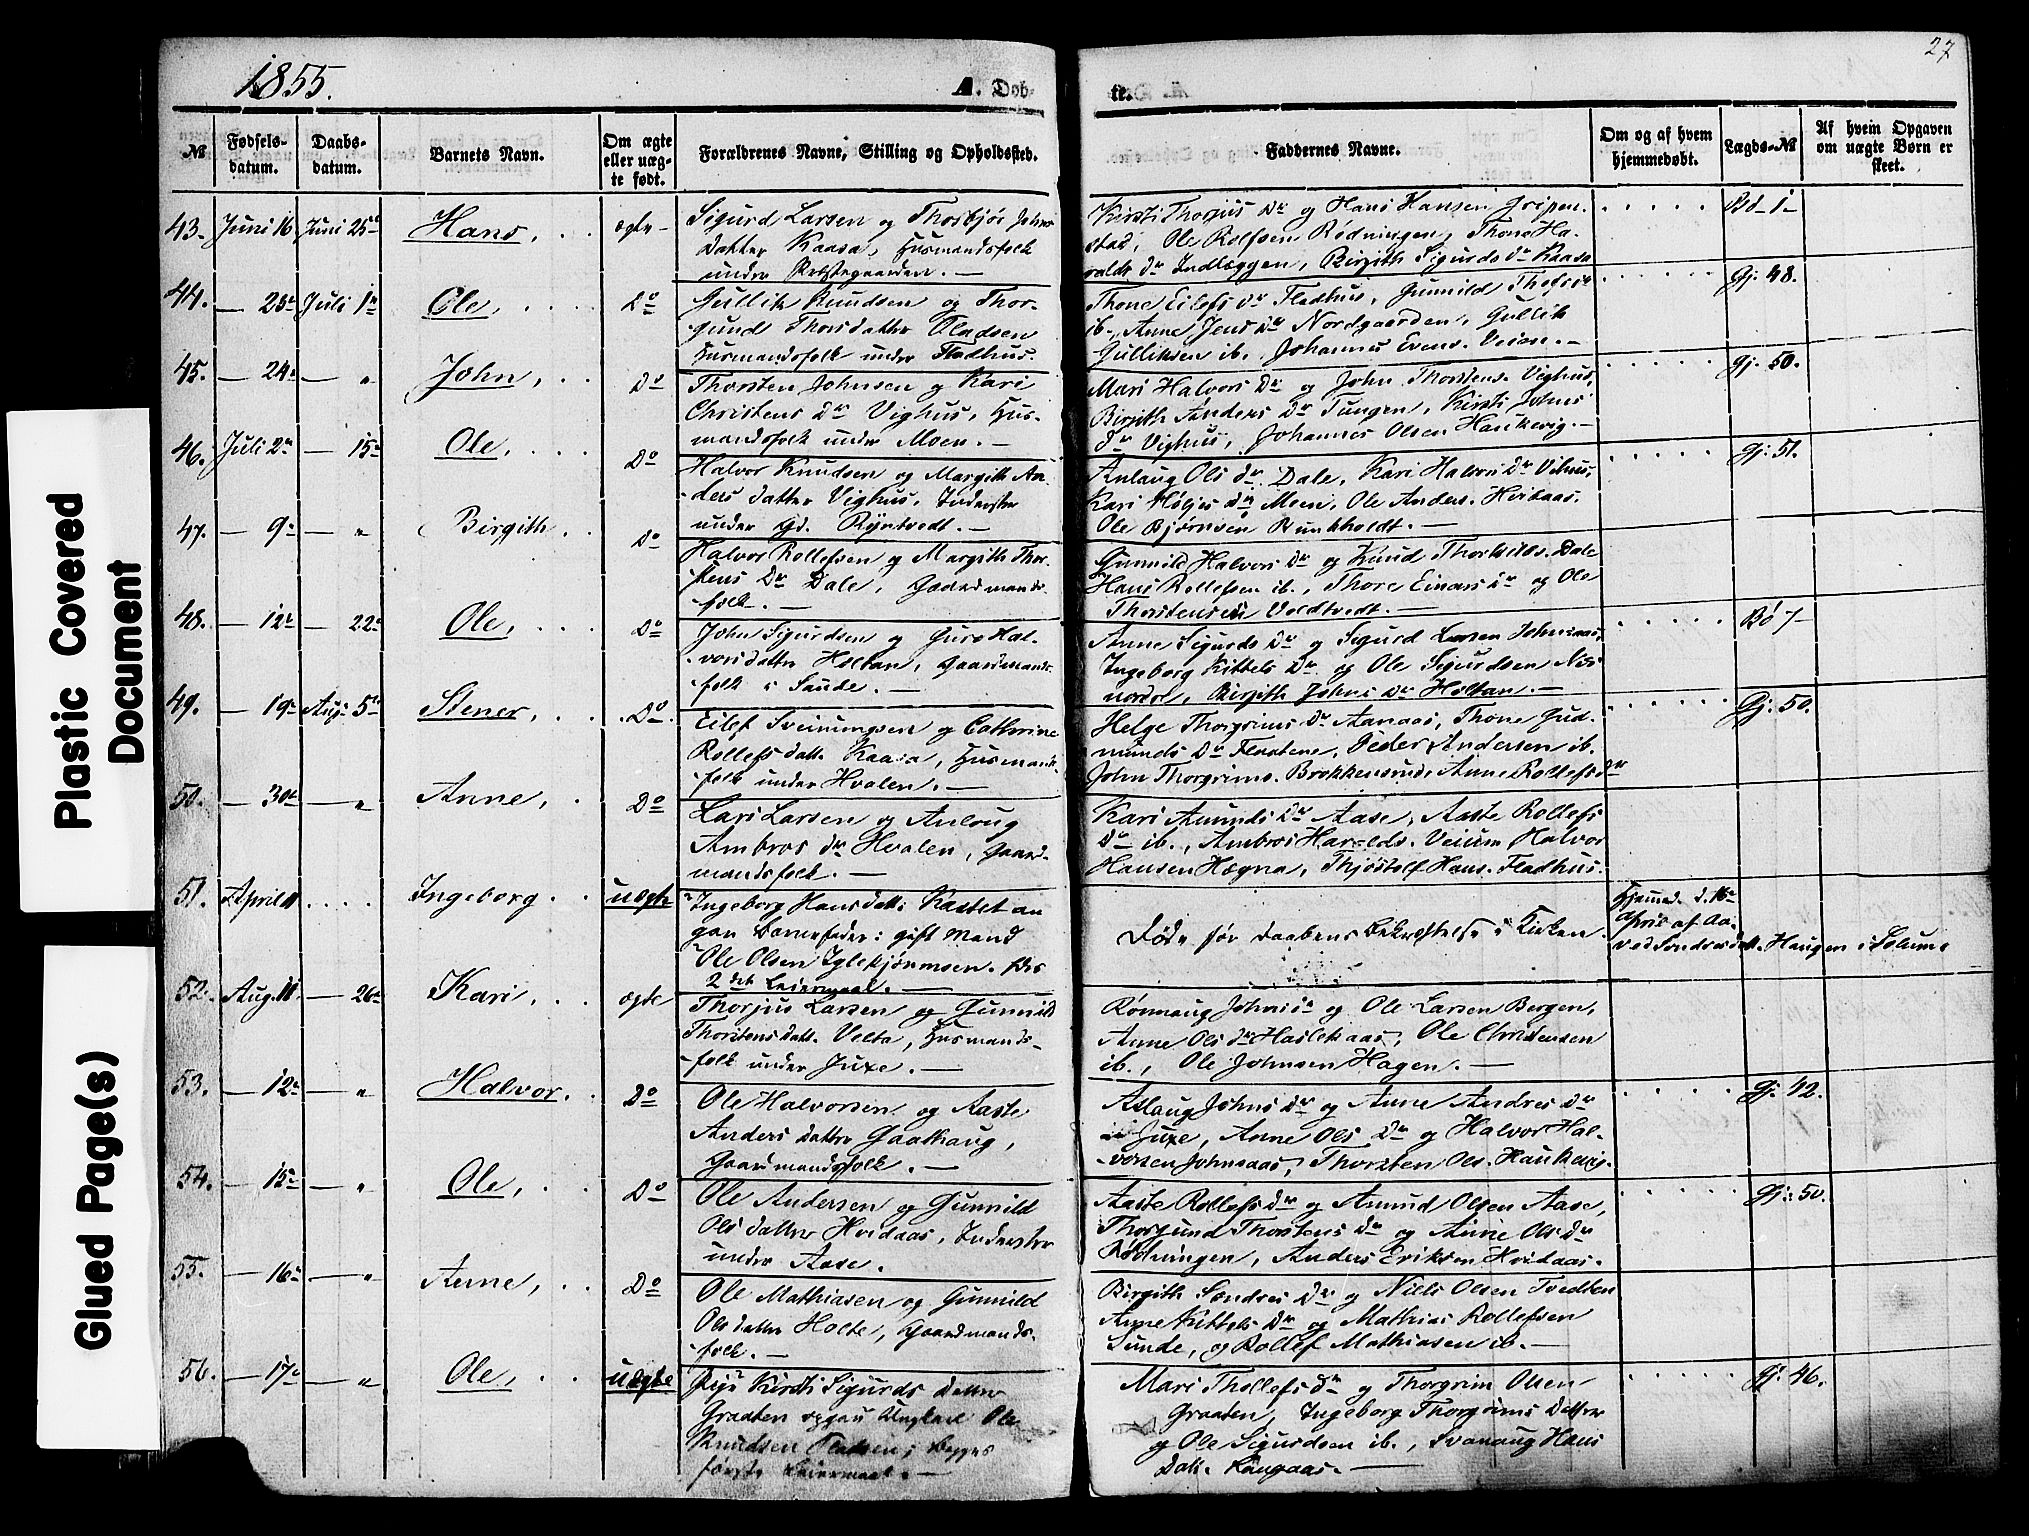 Plastic Covered
Document
Glued Page(s)
1855.
A. Døb-
te.
27
№
Fødsels-
datum.
Daabs-
datum.
Barnets Navn.
Om ægte
eller uæg-
te født.
Forældrenes Navne, Stilling og Opholdssted.
Faddernes Navne.
Om og af hvem
hjemmedøbt.
Lægds-№
Af hvem Opgaven
om uægte Børn er
skeet.
43. Juni 16 Juni 25de Hans, ægte
Sigurd Larsen og Thorbjør Johns
datter Kaasa, Husmandsfolk
under Præstegaarden.
Kirsti Thorjus Dr og Hans Hansen Gripen-
stad, Ole Rolfsen Rødningen, Thone Ha-
ralds Dr Indlæggen, Birgith Sigurds Dr Kaasa
Bø 1
44. — 25de Juli 1te Ole, Do
Gullik Knudsen og Thor-
gund Thorsdatter Oladsen
Husmandsfolk under Fladhus.
Thone Eilefs Dr Fladhus, Gunnild Thofs Dr
ib., Anne Jens Dr Nordgaarden, Gullik
Gulliksen ib. Johannes Evens. Veien.
Gj. 48.
45. — 24de — „ John, Do
Thorsten Johnsen og Kari
Christens Dr Vighus, Hus-
mandsfolk under Moen.
Mari Halvors Dr og John Thorstens. Vighus,
Birgith Anders Dr Tungen, Kirsti Johns
Dr Vighus, Johannes Olsen Haukevig.
Gj. 50.
46. Juli 2de — 15de Ole, Do
Halvor Knudsen og Margith An-
ders datter Vighus, Inderster
under Gd. Ryntvedt.
Anlaug Ols Dr Dale, Kari Halvors Dr Vihus,
Kari Høljes Dr Moen, Ole Anders. Hvitaas.
Ole Bjørnsen Munkholdt.
Gj. 51.
47. — 9de — „ Birgith Do
Halvor Rollefsen og Margith Thor-
stens Dr Dale, Gaardmands-
folk.
Gunnild Halvors Dr og Knud Thorkilds. Dale
Hans Rollefsen ib., Thore Einars Dr og Ole
Thorstensen Voldtvedt.
48. — 12te — 22de Ole, Do
John Sigurdsen og Guro Hal-
vorsdatter Holtan, Gaardmands-
folk i Sande.
Anne Sigurds Dr og Sigurd Larsen Johnsaas,
Ingeborg Kittels Dr og Ole Sigurdsen Nis
nordre, Birgith Johns Dr Holtan.
Bø 7
49. — 19de Aug. 5te Stener, Do.
Eilef Sveinungsen og Cathrine
Rollefs datt. Kaasa, Husmands-
folk under Hvalen.
Helge Thorgrims Dr Aanaas, Thone Gud-
munds Dr Flaatene, Peder Andersen ib.
John Thorgrims. Brokkensrud, Anne Rollefs Dr
Gj. 50.
50. — 30te — „ Anne, Do
Lars Larsen og Anlaug
Ambros Dr Hvalen, Gaard-
mandsfolk.
Kari Amunds Dr Aase, Aaste Rollefs
Dr ib., Ambros Haralds. Veium Halvor
Hansen Hægna, Thjøstolf Hans. Fladhus.
51. April 11 .... Ingeborg uægte
Ingeborg Hans datt. Kastet an
gav Barnefader: gift Mand
Ole Olsen Iglekjønmsen.
2det Leiermaal.
Død før Daabens Bekræftelse i Kirken
Hjemmed. d. 16de
April af Aa-
ved Sondresd. Haugen i Solum.
52. Aug. 11. — 26de Kari, ægte
Thorjus Larsen og Gunnild
Thorstens datt. Velta, Husmands-
folk under Juxe.
Rønnaug Johns Dr og Ole Larsen Bergen,
Anne Ols Dr Haslekaas, Ole Christensen
ib., Ole Johnsen Hagen.
53. — 12te — „ Halvor. Do
Ole Halvorsen og Aaste
Anders datter Gaathaug,
Gaardmandsfolk.
Aslaug Johns Dr og Anne Andres Dr
Juxe, Anne Ols Dr og Halvor Hal-
vorsen Johnsaas, Thorsten Ols. Haukevig.
Gj. 42.
54. — 15de — „ Ole, Do
Ole Andersen og Gunnild
Ols datter Hvidaas, Inderster
under Aase.
Aaste Rollefs Dr og Amund Olsen Aase,
Thorgund Thorstens Dr og Anne Ols Dr
Rødningen, Anders Eriksen Hvidaas.
Gj. 50.
55. — 16de — „ Anne, Do
Ole Mathiasen og Gunnild
Olsdatter Holte, Gaardmands-
folk.
Birgith Sondres Dr og Niels Olsen Tvedten
Anne Kittels Dr og Mathias Rollefsen
Sunde, og Rollef Mathiasen ib.
56. — 17de — „ Ole, uægte
Pige Kirsti Sigurds datter
Graaten opgav Ungkarl Ole
Knudsen Fladsen; begges
første Leiermaal.
Mari Thollefs Dr og Thorgrim Olsen
Graaten, Ingeborg Thorgrims Datter
og Ole Sigurdsen ib., Svanaug Hans
Datt. Langaas.
Gj. 46.